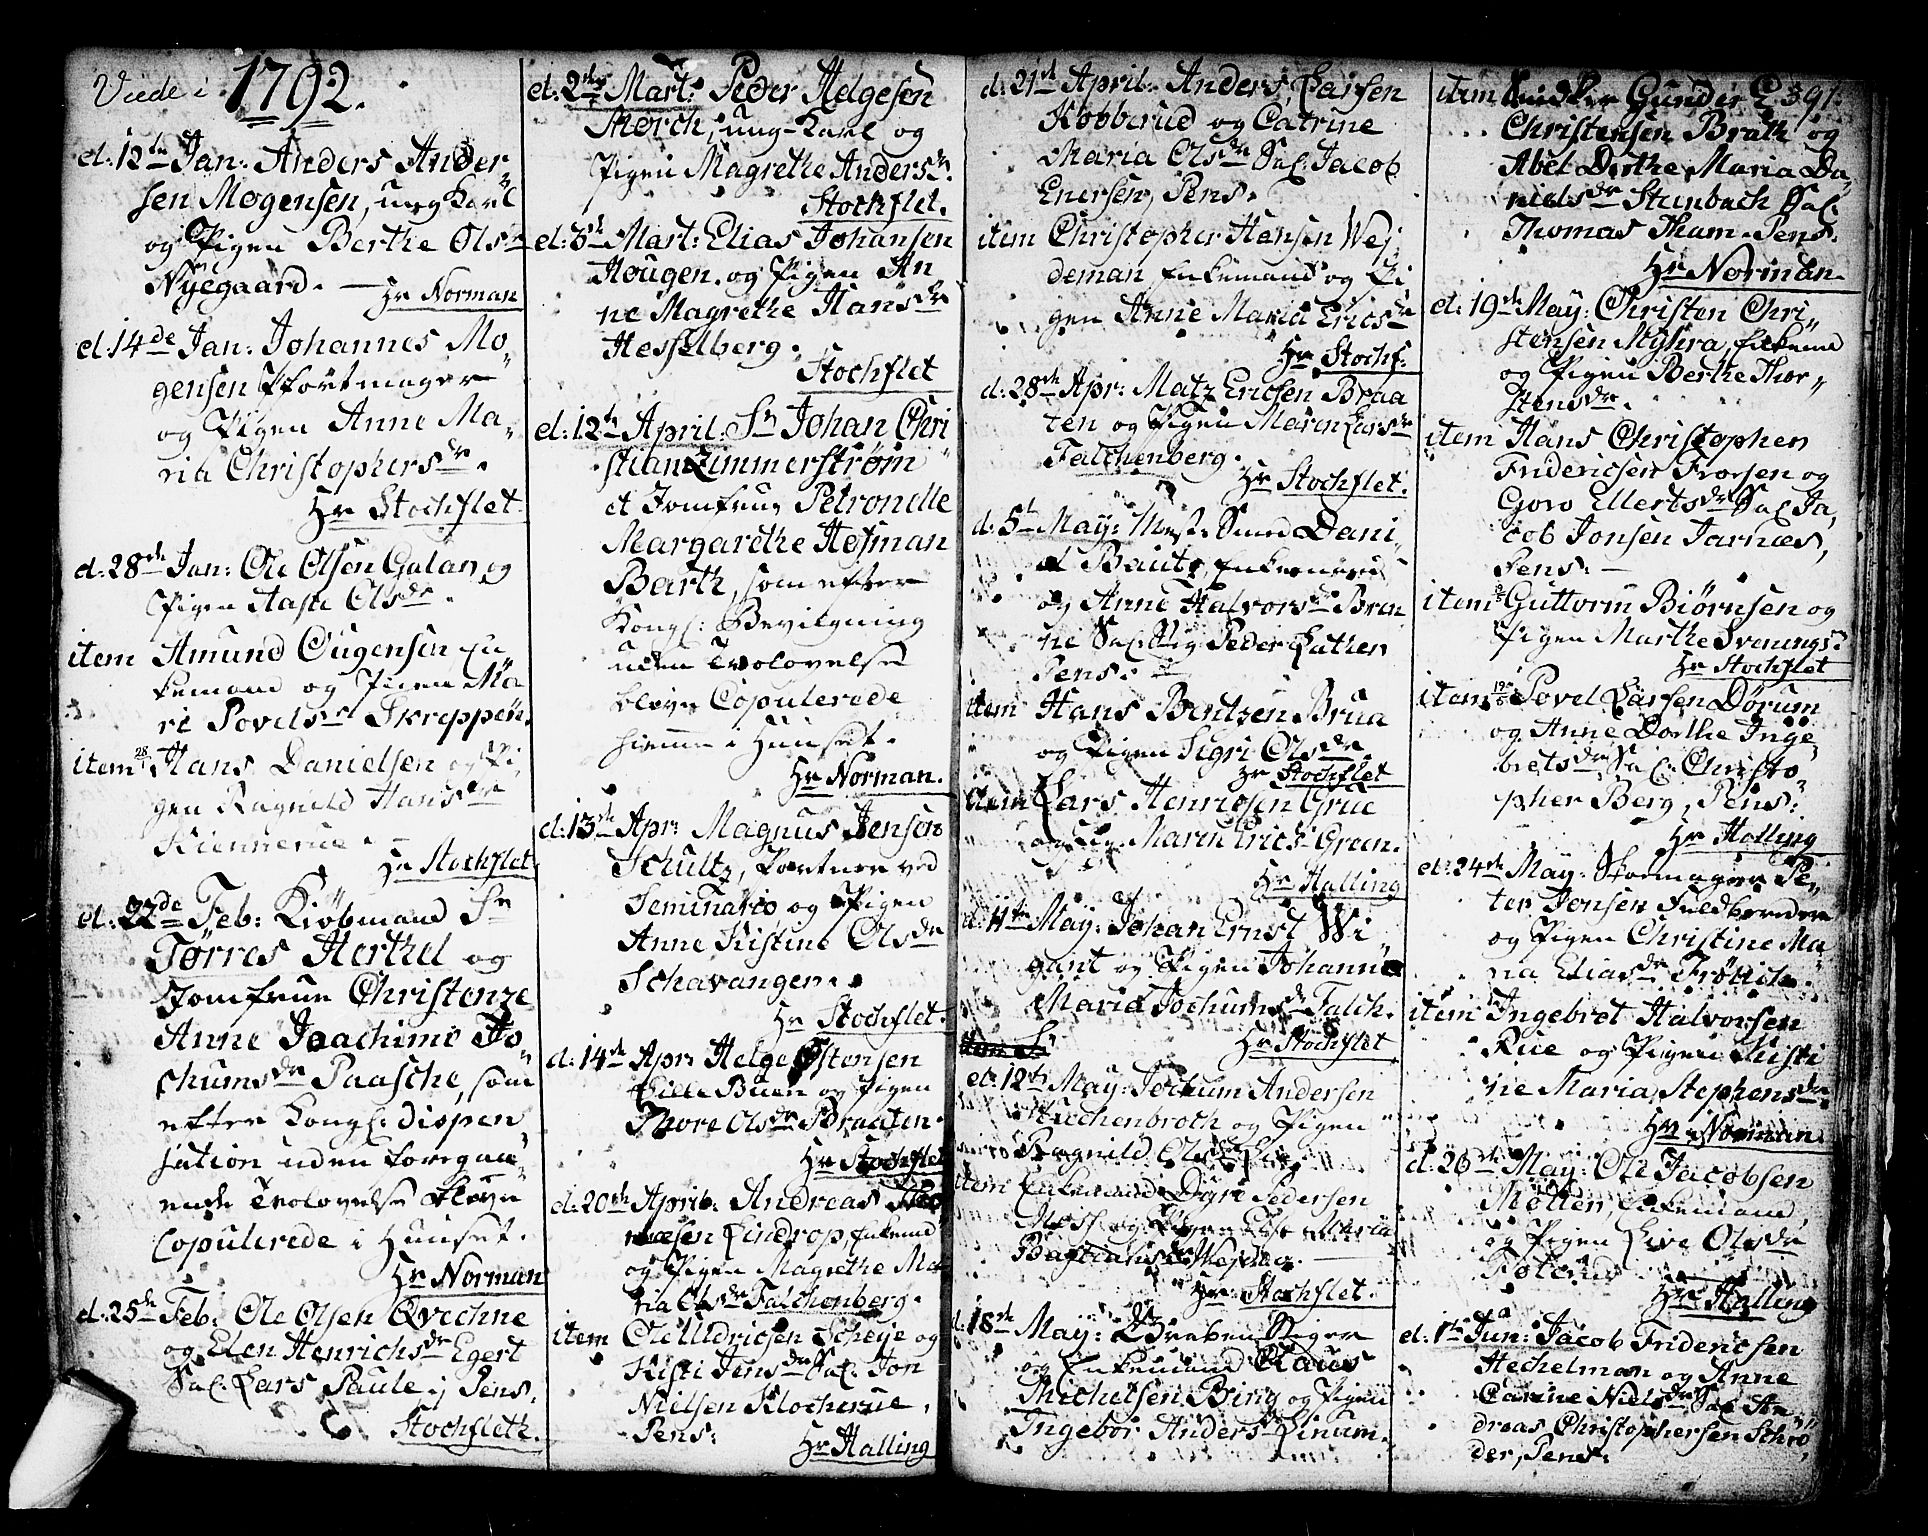 Viede i 1792.
d. 12te Jan: Anders Ander-
sen Mogensen, ung Karl
og Pigen Berthe Olsdr
Nÿegaard. — Hr Norman
d. 14de Jan: Johannes Mo-
gensen
og Pigen Anne Ma-
ria Christophersdr.
Hr Stochflet.
d. 28de Jan: Ole Olsen Galan og
Pigen Aase Olsdr.
item Amund Ougensen En-
kemand og Pigen Ma-
ri Povelsdr Skreppen.
item 28 Hans Danielsen og Pi-
gen Ragnild Hansdr
Kiennerue. —
Hr Stochflet
d. 22de Feb: Kiøbmand Sr
Tørres Herthel og
Jomfrue Christenze
Anne Joachime Jo-
chumsdr Paasche, som
efter Kongl: dispen-
sation uden foregaa-
ende Trolovelse bleve
Copulerede i Huuset.
Hr Norman
d. 25de Feb: Ole Olsen Qvechne
og Elen Henrichsdr Egert
Sal. Lars Paule, Pens.
Stochfleth.
d. 2de Mart: Peder Helgesen
Mørch, ung-Karl og
Pigen Magrethe Andersdr.
Stochflet.
d. 3de Mart: Elias Johansen
Hougen. og Pigen An
ne Magrethe Hansdr
Hesselberg.
Stochflet
d. 12te April: Sr Johan Chri
stian Zimmerstrøm
et Jomfrue Petronelle
Margarethe Hofman
Barth, som efter
Kongl: Bevilgning
uden Trolovelse
bleve Copulerede
hiemme i Huuset.
Hr Norman.
d. 13de Apr: Magnus Jensen
Schultz, Portner ved
Seminario, og Pigen
Anne Kistine Olsdr
Schavangen.
Hr Stochflet.
d. 14de Apr: Helge Østensen
Lille Buen og Pigen
Thore Olsdr Braaten.
Hr Stochflet
d. 20de April: Andreas
Lindrop, Enkemd
og Pigen Magrethe Ma
ria Olsdr Falchenberg.
item Ole Uldricsen Scheje og
Kisti Jensdr Sal. Jon
Nielsen Klocherue,
Pens:
Hr Halling
d. 21de April: Anders Larsen
Kobberud og Catrine
Maria Olsdr Sal. Jacob
Enersen, Pens.
item Christopher Hansen Wej
deman Enkemand og Pi
gen Anne Maria Ericsdr
Hr Stochf:
d. 28de Apr: Matz Ericsen Braa
ten og Pigen Maren Larsdr
Falchenberg.
Hr Stochflet.
d. 5te May: Mest: Smed Dani-
el Bautz, Enkemand
og Anne Halvorsdr Bran
ne Sal. Peder Lathen
Pens:
item Hans Bentzen Brua
og Pigen Sigri Olsdr.
Hr Stochflet
item Lars Henricsen Grue
og Marin Erics: Green.
Hr Halling
d. 11te May: Johan Ernst Wi
gant og Pigen Johanne
Maria Jochumsdr Falch.
Hr Stochflet
d. 12te May: Jochum Andersen
Huchenbroch og Pigen
Pognild Olsdr
item Enkemand Dyre Pedersen
Moss og Pigen Else Maria
Bastiansdr
Hr Stochflet.
d. 18de May: Graben Stiger
og Enkemand Claus
Michelsen Bing og Pigen
Ingebor Andersdr Linum.
item Gunder 391.
Christensen Brath og
Abel Dorthe Maria Da-
nielsdr Stenbach Sal.
Thomas Tham. Pens.
Hr Norman.
d. 19de May: Christen Chri-
stensen Myhra, Enkemd
og Pigen Berthe Thor-
stensdr.
item Hans Christophen
Fridericsen Frorsen og
Goro Ellertsdr Sal. Ja
cob Jonsen Jarnæs,
Pens: —
item Guttorm Biørnsen og
Pigen Marthe Svenungsdr
Hr Stochflet
item 19 Povel Larsen Dørum
og Anne Dorthe Inge-
bretsdr Sal. Christo-
pher Berg, Pens:
Hr Halling
d. 24de May: Skomager Pe-
ter Jensen Fuldbender
og Pigen Christine Ma-
ria Eliasdr Frølich.
item Ingebret Halvorsen
Rue og Pigen Kisti
ne Maria Stephensdr.
Hr Norman.
d. 26de May: Ole Jacobsen
Møllen, Enkemand,
og Pigen Live Olsdr
Foterud
Hr Halling
d. 1ta Jun: Jacob Fridericsen
Hechelman og Anne
Carine Nielsdr Sal. An
dreas Christophersen Schrø
der, Pens.